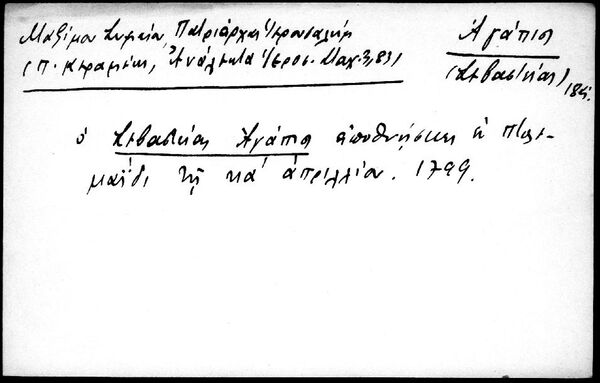 Μαξίμου Συμαίου, Πατριάρχου Ἱεροσολύμων
(Π. Κεραμέως, Ἀνάλεκτα Ἱεροσ. Σταχ. 3, 83)
Ἀγάπιος
(Σεβαστείας)
ὁ Σεβαστείας Ἀγάπιος ἀποθνήσκει ἐν Πτολε-
μαΐδι τῇ κα' ἀπριλλίου. 1799.